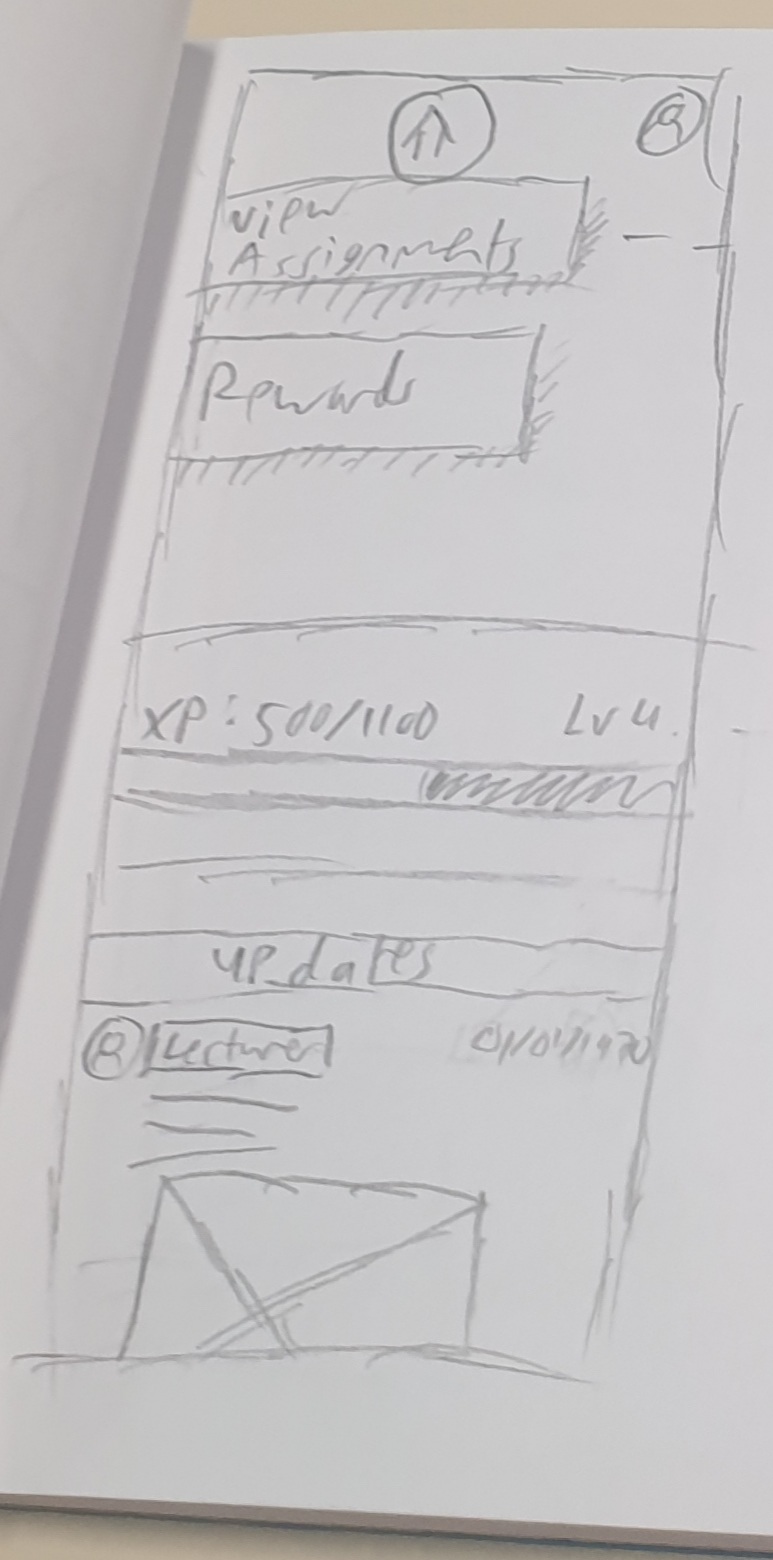 View
Assignments
Rewards
XP: 500/1100 Lv 4.
updates
Lecturer 01/01/1970